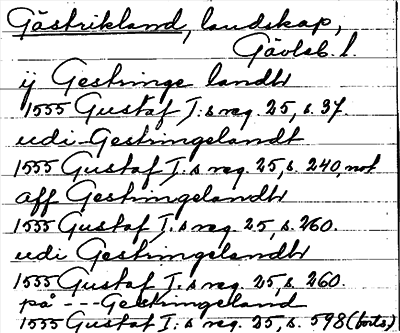 Gästrikland, landskap,
Gävleb. l.
ij Gestringe landtt
1555 Gustaf I:s reg. 25, s. 37.
udi Gestringelandt
1555 Gustaf I:s reg. 25, s. 240, not
aff Gestringelandtt
1555 Gustaf I:s reg. 25, s. 260.
udi Gestringelandtt
1555 Gustaf I:s reg. 25, s. 260.
på --- Gestringeland
1555 Gustaf I:s reg. 25, s. 598 (forts.)